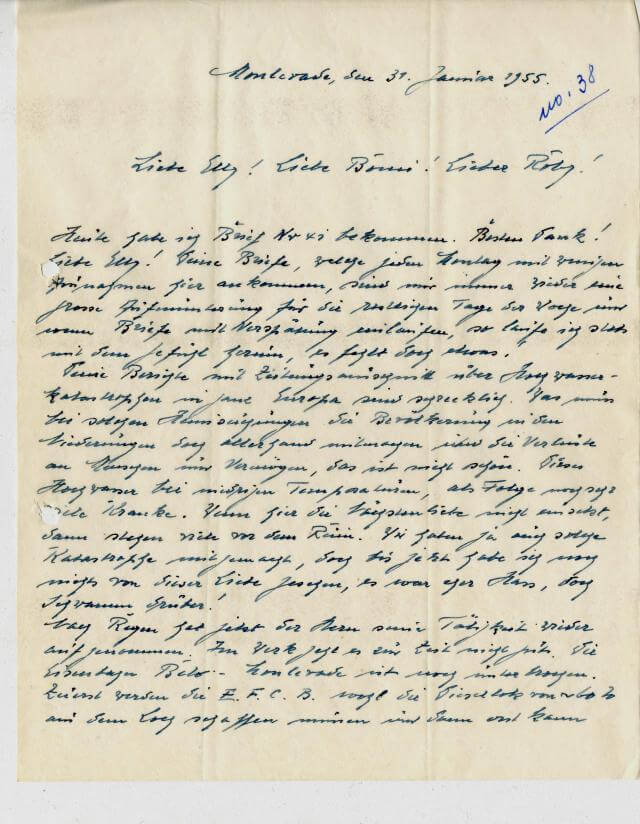 Monlevade, den 31. Januar 1955.
no. 38
Liebe Elly! Liebe Bömi! Lieber Röby!
Heute habe ich Brief Nr 41 bekommen. Besten Dank!
Liebe Elly! Deine Briefe, welche jeden Montag mit wenigen
Ausnahmen hier ankommen, sind mir immer wieder eine
grosse Aufmunterung für die restligen Tage der Woche und
wenn Briefe mit Verspätung einlaufen, so laufe ich stets
mit dem Gefühl herum, es fehlt doch etwas!
Deine Berichte mit Zeitungsausschnitt über Hochwasser-
katastrophen in ganz Europa sind schrecklich. Was muss
bei solchen Heimsuchungen die Bevölkerung in den
Niederungen doch allerhand mitmachen und die Verluste
an Menschen und Vermögen, das ist nicht schön. Dieses
Hochwasser bei niedrigen Temperaturen, als Folge noch sehr
viele Kranke. Wenn hier die Nächstenliebe nicht einsetzt,
dann stehen viele vor dem Ruin. Wir haben ja auch solche
Katastrophe mitgemacht, doch bis jetzt habe ich noch
nichts von dieser Liebe gesehen, es war eher Hass, doch
Schwamm drüber!
Nach Regen hat jetzt der Stern seine Tätigkeit wieder
aufgenommen. Im Werk geht es zur Zeit nicht gut. Die
Eisenbahn Belo - Monlevade ist noch unterbrochen.
Zuerst werden die E.F.C.B. wohl die Diesellok von 60 To
aus dem Loch schaffen müssen und dann erst kann